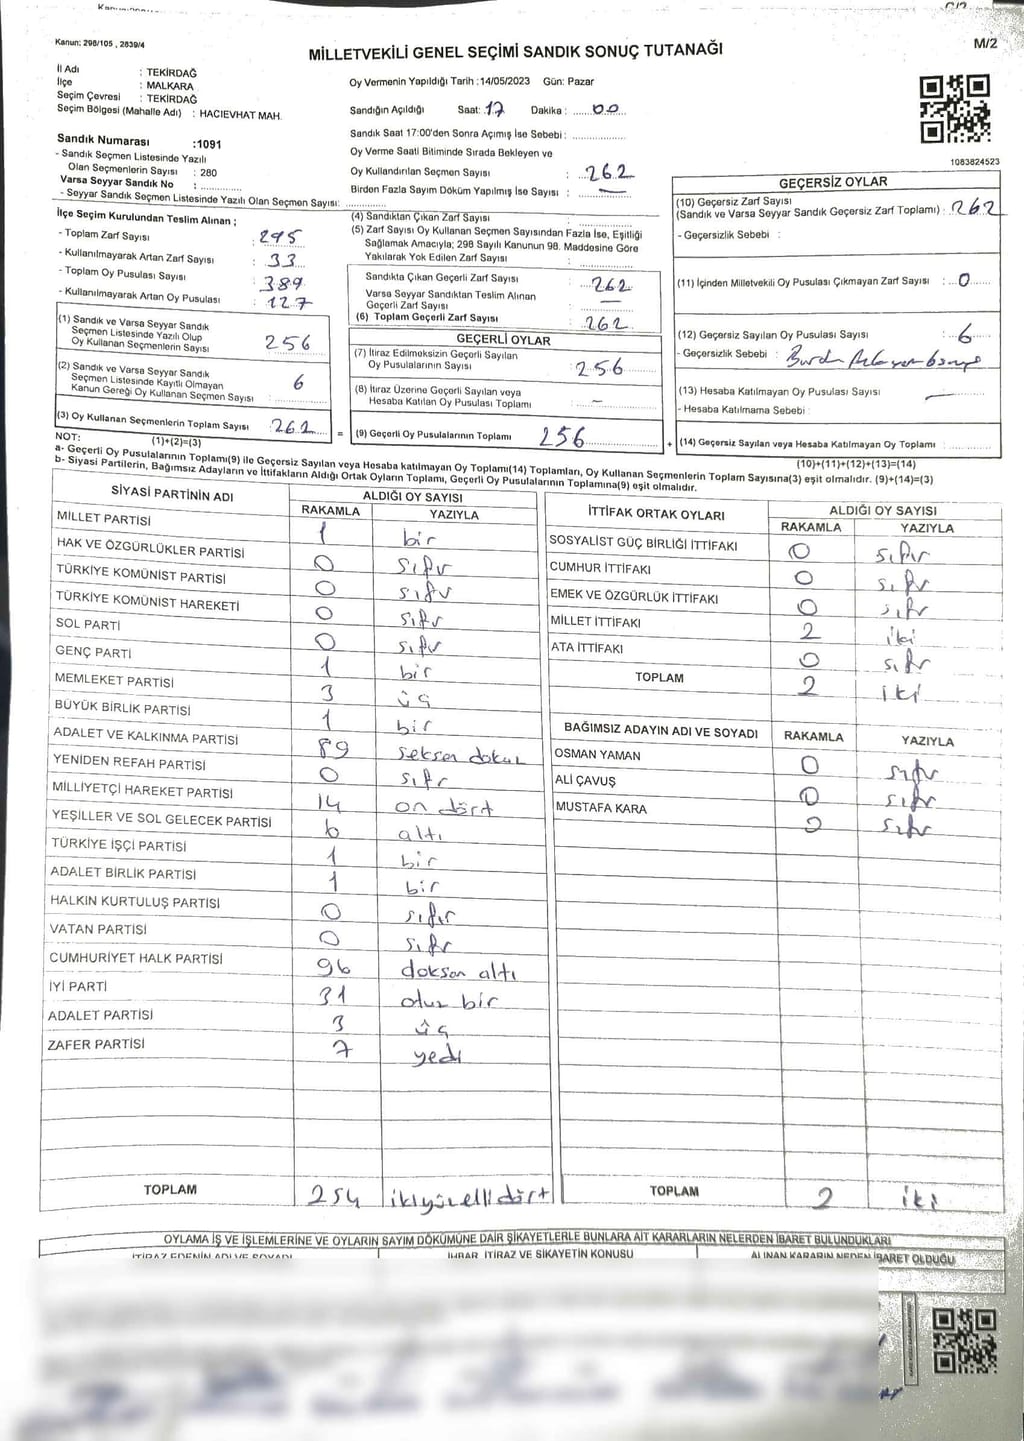 Kanun: 298/105 , 2839/4
M/2
MİLLETVEKİLİ GENEL SEÇİMİ SANDIK SONUÇ TUTANAĞI
İl Adı : TEKİRDAĞ
İlçe : MALKARA
Seçim Çevresi : TEKİRDAĞ
Seçim Bölgesi (Mahalle Adı) : HACIEVHAT MAH.
Oy Vermenin Yapıldığı Tarih :14/05/2023 Gün: Pazar
Sandığın Açıldığı Saat: 17 Dakika : 00
Sandık Saat 17:00'den Sonra Açımış İse Sebebi :
Oy Verme Saati Bitiminde Sırada Bekleyen ve
Oy Kullandırılan Seçmen Sayısı : 262
Birden Fazla Sayım Döküm Yapılmış İse Sayısı : —
1083824523
Sandık Numarası :1091
- Sandık Seçmen Listesinde Yazılı
Olan Seçmenlerin Sayısı : 280
Varsa Seyyar Sandık No :
- Seyyar Sandık Seçmen Listesinde Yazılı Olan Seçmen Sayısı:
İlçe Seçim Kurulundan Teslim Alınan ;
- Toplam Zarf Sayısı : 295
- Kullanılmayarak Artan Zarf Sayısı : 33
- Toplam Oy Pusulası Sayısı : 389
- Kullanılmayarak Artan Oy Pusulası : 127
(1) Sandık ve Varsa Seyyar Sandık
Seçmen Listesinde Yazılı Olup
Oy Kullanan Seçmenlerin Sayısı 256
(2) Sandık ve Varsa Seyyar Sandık
Seçmen Listesinde Kayıtlı Olmayan
Kanun Gereği Oy Kullanan Seçmen Sayısı : 6
(3) Oy Kullanan Seçmenlerin Toplam Sayısı : 262
(1)+(2)=(3)
(4) Sandıktan Çıkan Zarf Sayısı :
(5) Zarf Sayısı Oy Kullanan Seçmen Sayısından Fazla İse, Eşitliği
Sağlamak Amacıyla; 298 Sayılı Kanunun 98. Maddesine Göre
Yakılarak Yok Edilen Zarf Sayısı :
Sandıkta Çıkan Geçerli Zarf Sayısı : 262
Varsa Seyyar Sandıktan Teslim Alınan
Geçerli Zarf Sayısı : —
(6) Toplam Geçerli Zarf Sayısı : 262
GEÇERLİ OYLAR
(7) İtiraz Edilmeksizin Geçerli Sayılan
Oy Pusulalarının Sayısı : 256
(8) İtiraz Üzerine Geçerli Sayılan veya
Hesaba Katılan Oy Pusulası Toplamı : —
= (9) Geçerli Oy Pusulalarının Toplamı 256
GEÇERSİZ OYLAR
(10) Geçersiz Zarf Sayısı
(Sandık ve Varsa Seyyar Sandık Geçersiz Zarf Toplamı) : 262
- Geçersizlik Sebebi :
(11) İçinden Milletvekili Oy Pusulası Çıkmayan Zarf Sayısı : 0
(12) Geçersiz Sayılan Oy Pusulası Sayısı : 6
- Geçersizlik Sebebi :
(13) Hesaba Katılmayan Oy Pusulası Sayısı : —
- Hesaba Katılmama Sebebi :
+ (14) Geçersiz Sayılan veya Hesaba Katılmayan Oy Toplamı :
(10)+(11)+(12)+(13)=(14)
NOT:
a- Geçerli Oy Pusulalarının Toplamı(9) ile Geçersiz Sayılan veya Hesaba katılmayan Oy Toplamı(14) Toplamları, Oy Kullanan Seçmenlerin Toplam Sayısına(3) eşit olmalıdır. (9)+(14)=(3)
b- Siyasi Partilerin, Bağımsız Adayların ve İttifakların Aldığı Ortak Oyların Toplamı, Geçerli Oy Pusulalarının Toplamına(9) eşit olmalıdır.
SİYASİ PARTİNİN ADI ALDIĞI OY SAYISI
RAKAMLA YAZIYLA
MİLLET PARTİSİ 1 bir
HAK VE ÖZGÜRLÜKLER PARTİSİ 0 sıfır
TÜRKİYE KOMÜNİST PARTİSİ 0 sıfır
TÜRKİYE KOMÜNİST HAREKETİ 0 sıfır
SOL PARTİ 0 sıfır
GENÇ PARTİ 1 bir
MEMLEKET PARTİSİ 3 üç
BÜYÜK BİRLİK PARTİSİ 1 bir
ADALET VE KALKINMA PARTİSİ 89 seksen dokuz
YENİDEN REFAH PARTİSİ 0 sıfır
MİLLİYETÇİ HAREKET PARTİSİ 14 on dört
YEŞİLLER VE SOL GELECEK PARTİSİ 6 altı
TÜRKİYE İŞÇİ PARTİSİ 1 bir
ADALET BİRLİK PARTİSİ 1 bir
HALKIN KURTULUŞ PARTİSİ 0 sıfır
VATAN PARTİSİ 0 sıfır
CUMHURİYET HALK PARTİSİ 96 doksan altı
İYİ PARTİ 31 otuz bir
ADALET PARTİSİ 3 üç
ZAFER PARTİSİ 7 yedi
TOPLAM 254 ikiyüzellidört
İTTİFAK ORTAK OYLARI ALDIĞI OY SAYISI
RAKAMLA YAZIYLA
SOSYALİST GÜÇ BİRLİĞİ İTTİFAKI 0 sıfır
CUMHUR İTTİFAKI 0 sıfır
EMEK VE ÖZGÜRLÜK İTTİFAKI 0 sıfır
MİLLET İTTİFAKI 2 iki
ATA İTTİFAKI 0 sıfır
TOPLAM 2 iki
BAĞIMSIZ ADAYIN ADI VE SOYADI RAKAMLA YAZIYLA
OSMAN YAMAN 0 sıfır
ALİ ÇAVUŞ 0 sıfır
MUSTAFA KARA 0 sıfır
TOPLAM 2 iki
OYLAMA İŞ VE İŞLEMLERİNE VE OYLARIN SAYIM DÖKÜMÜNE DAİR ŞİKAYETLERLE BUNLARA AİT KARARLARIN NELERDEN İBARET BULUNDUKLARI
İTİRAZ EDENİN ADI VE SOYADI İHBAR, İTİRAZ VE ŞİKAYETİN KONUSU ALINAN KARARIN NEDEN İBARET OLDUĞU